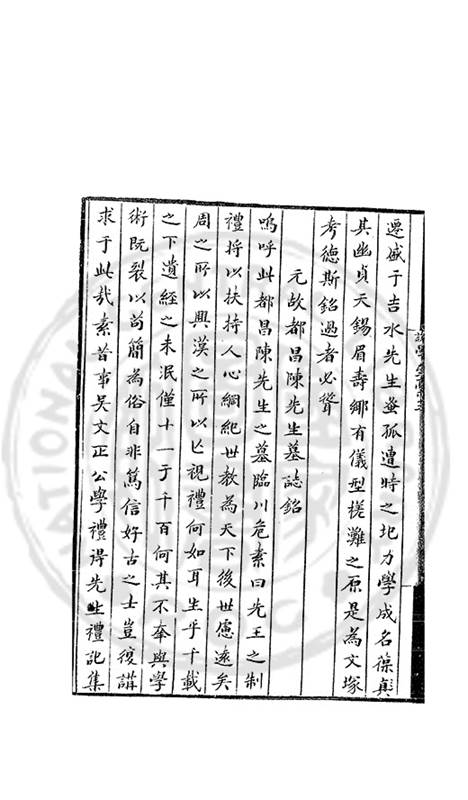 遷盛于吉水先生蚤孤遭時之圯力學成名葆真
其幽貞天錫眉壽鄉有儀型槎灘之原是為文塚
考德斯銘過者必聳
元故都昌陳先生墓誌銘
嗚呼此都昌陳先生之墓臨川危素曰先王之制
禮将以扶持人心綱紀世教為天下後世慮遠矣
周之所以興漢之所以亡視禮何如耳生乎千載
之下遺經之未泯僅十一于千百何其不幸與學
術既裂以苟簡為俗自非篤信好古之士豈復講
求于此哉素昔事吳文正公學禮得先生禮記集